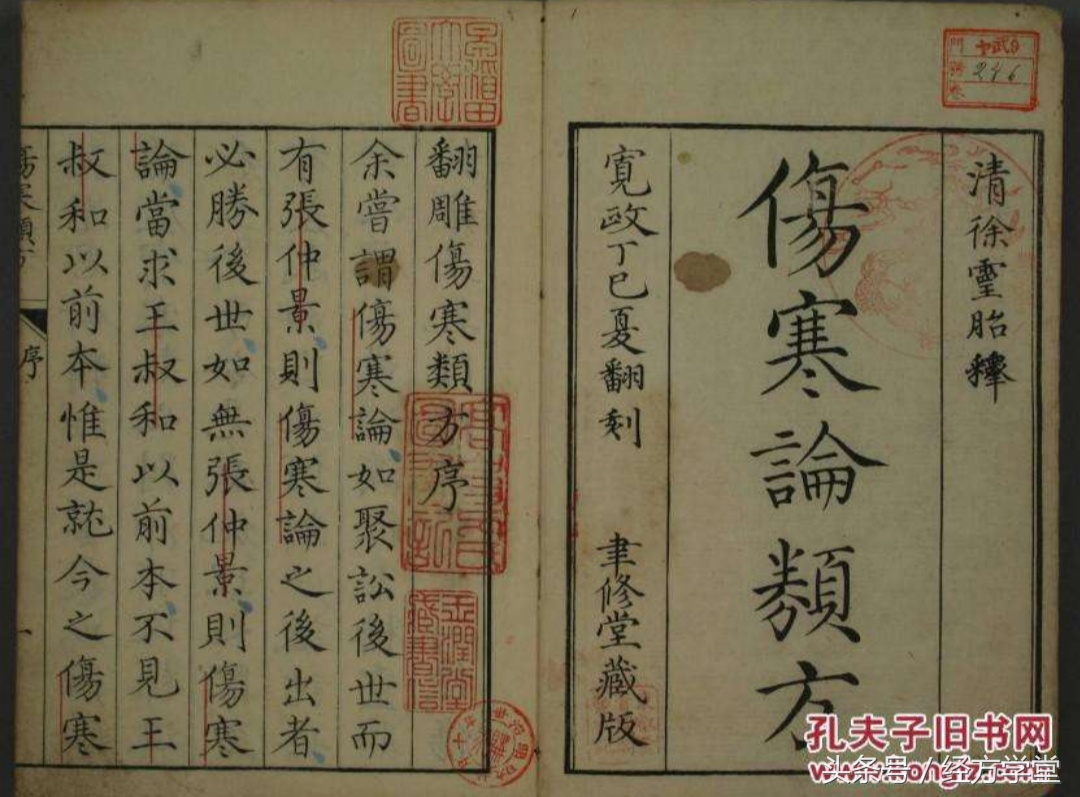 清徐霊胎釋
傷寒論類方
寛政丁巳夏翻刻 聿修堂藏版
翻雕傷寒類方序
余嘗謂傷寒論如聚訟後世而
有張仲景則傷寒論之後出者
必勝後世如無張仲景則傷寒
論當求王叔和以前本不見王
叔和以前本惟是就今之傷寒
序
一
246
孔夫子旧书网
头条号／经方学堂